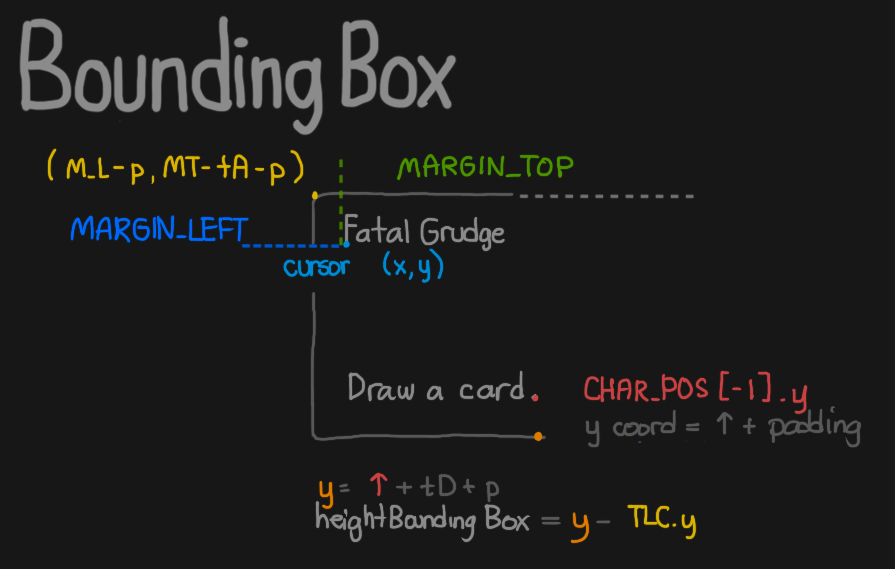 Bounding Box
(M_L-p, MT-tA-p)
MARGIN_TOP
MARGIN_LEFT
Fatal Grudge
cursor (x,y)
Draw a card.
CHAR_POS[-1].y
y coord = ↑ + padding
y = ↑ + tD + p
heightBounding Box = y - TLC.y